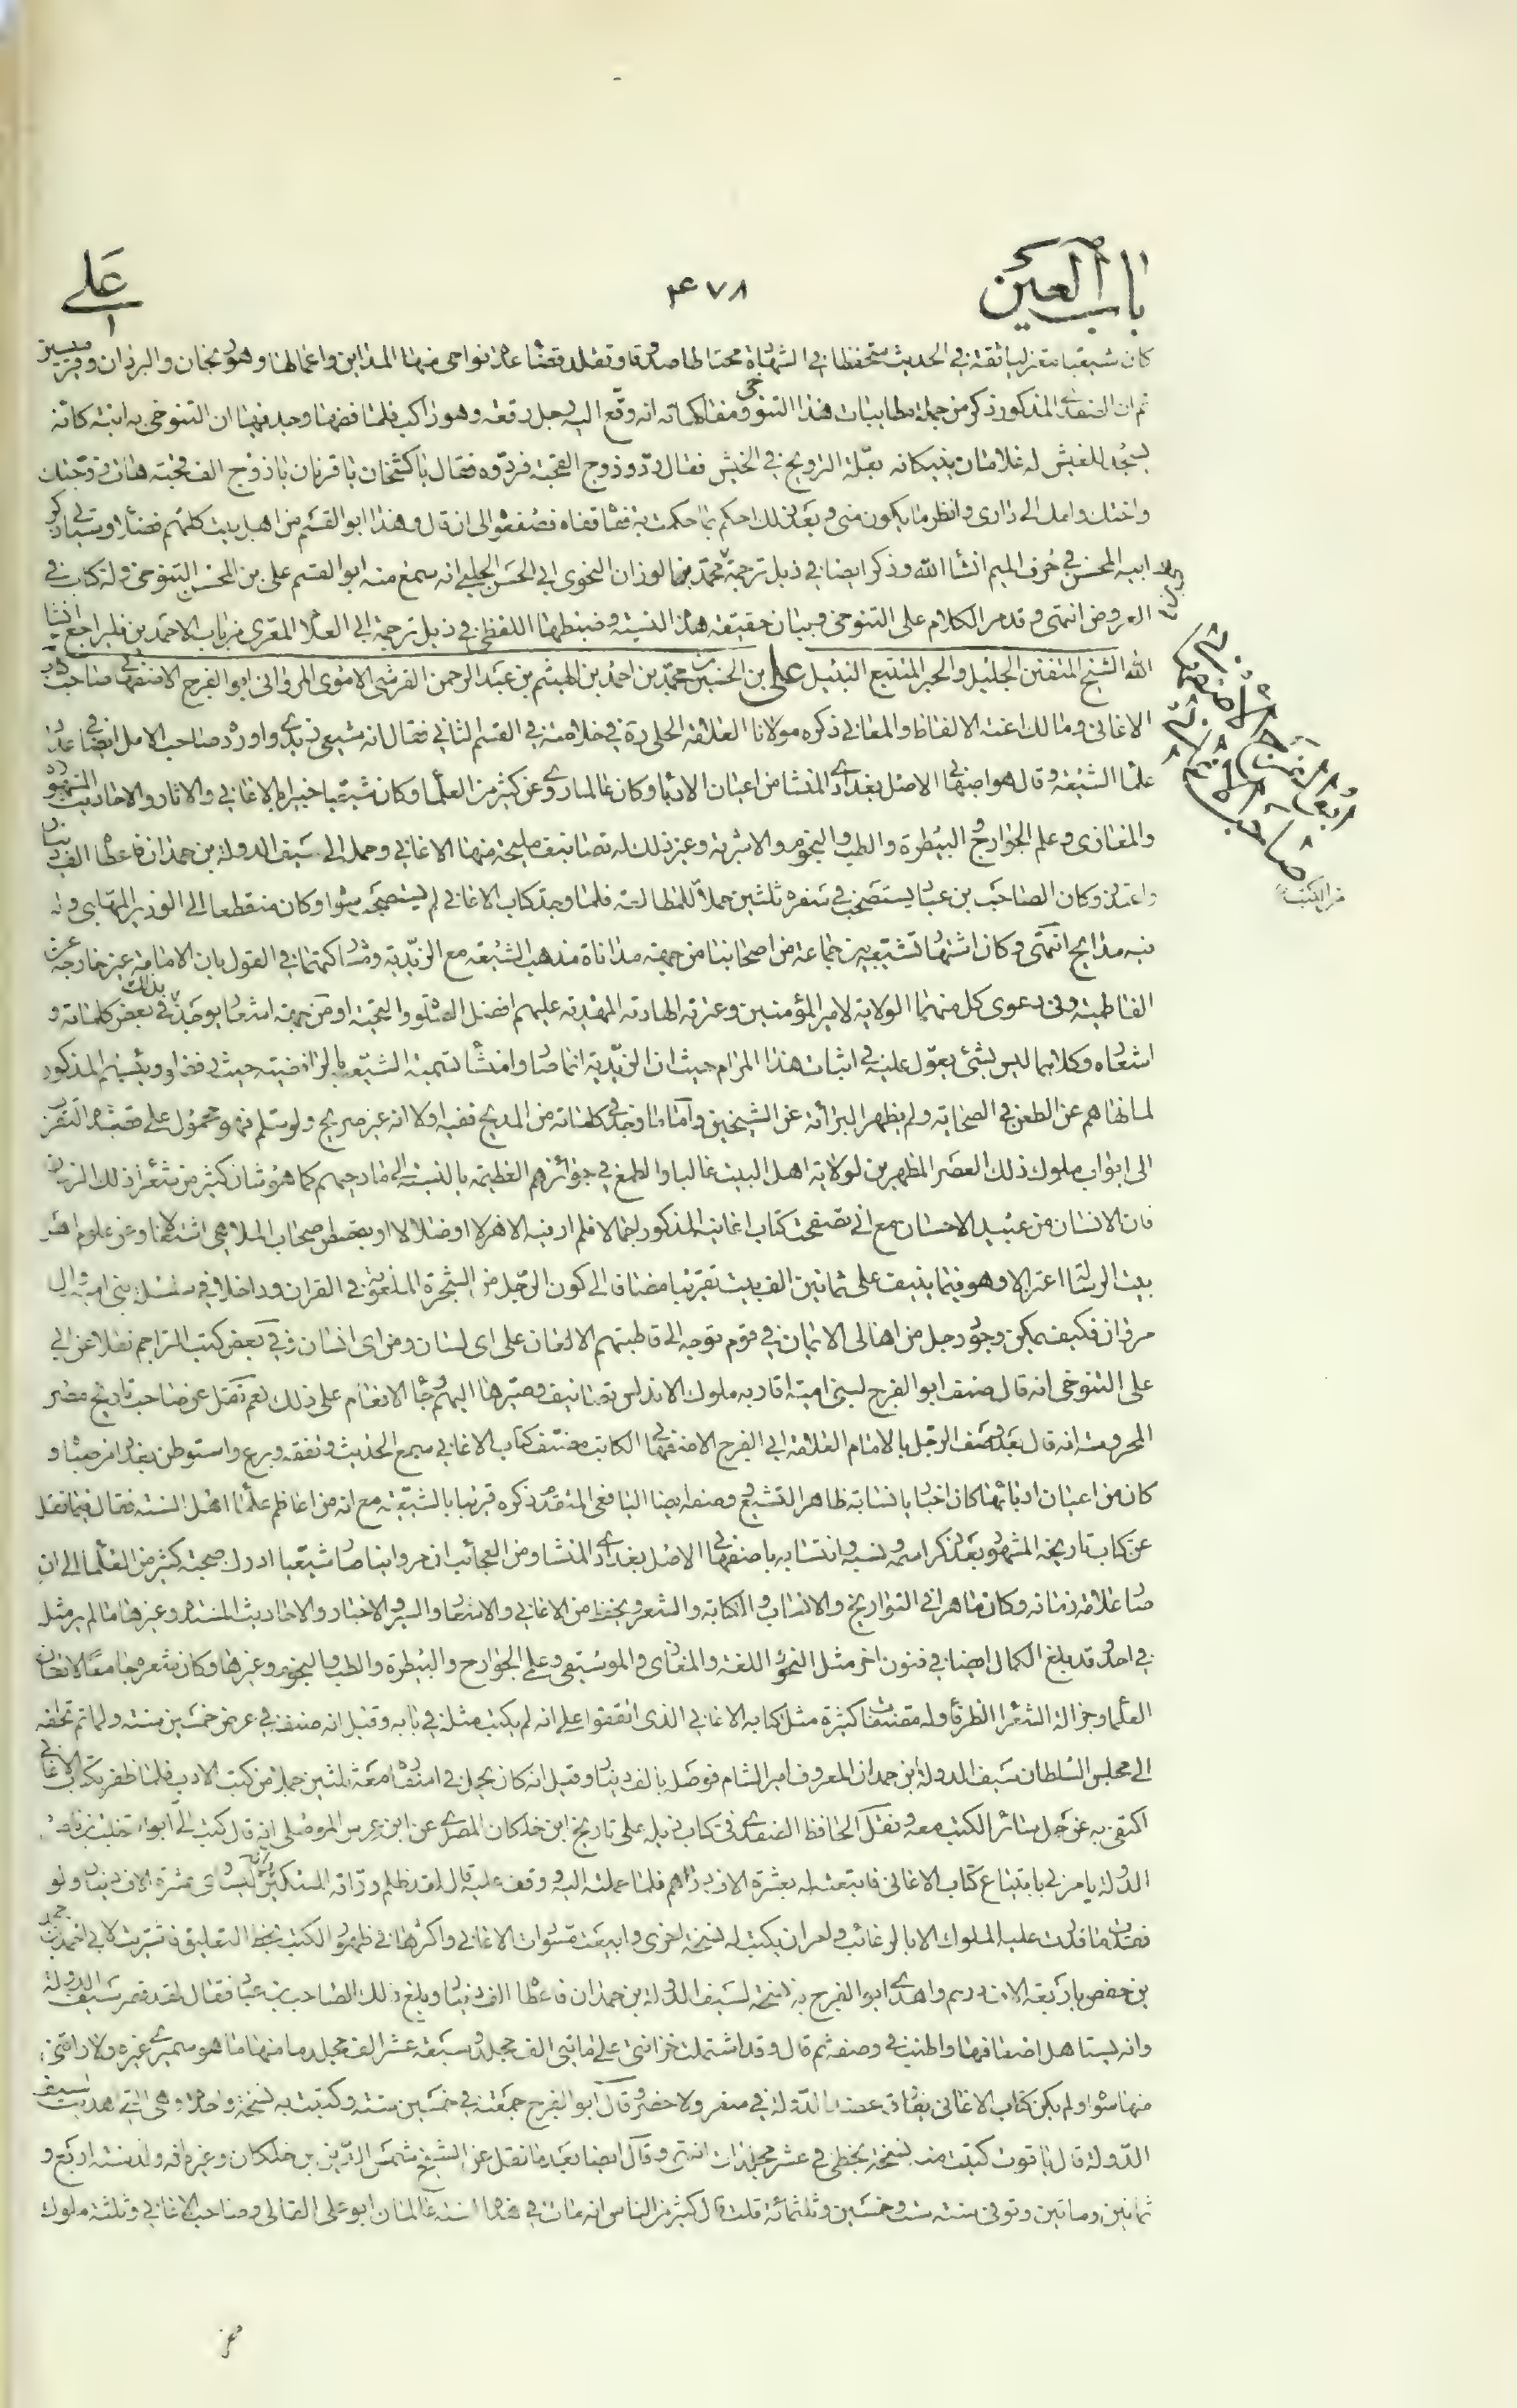 باب العين
۴۷۸
علي
كان شيعيا معتزليا ثقة في الحديث متحفظا في الشهادة محتاطا صدوقا وتقلد قضاء عدة نواحى منها المداين واعمالها و والبردان وقرميسين
ثم ان الصفدي المذكور ذكر من جملة مطايبات هذا التنوخى ومفاكهاته انه وقع اليه رجل رقعة وهو راكب فلما فضها وجد فيها ان التنوخى به ابنة كانه
يسجد للفيش له غلامان ينيكانه بعلة الترويح في الخيش فقال ردّوا زوج القحبة فردّوه فقال يا كشخان يا قرنان يا زوج الف قحبة هات زوجتك
واختك وامك الى دارى وانظر ما يكون منى وبعد ذلك احكم بما حكمت به قفاه قفاه فصفعوه الى ان قال وهذا ابو القسم من اهل بيت كلهم فضلاء وسيأتى ذكر
ابيه المحسن في حرف الميم انشاء الله وذكر ايضا في ذيل ترجمة محمد بن الوزان النحوى ابي الحسن الحلبي انه سمع منه ابو القسم على بن المحسن التنوخى وله كتاب في
العروض انتهى وقد مر الكلام على التنوخى وبيان حقيقة هذه النسبة وضبطها اللفظي في ذيل ترجمة ابي العلاء المعرى من باب الاحمد بن فليراجع انشاء
الله الشيخ المتفنن الجليل والحبر المتتبع النبيل على بن الحسين بن محمد بن احمد بن الهيثم بن عبد الرحمن القرشى الاموى المروانى ابو الفرج الاصفهانى صاحب كتاب
الاغانى ومالك اعنة الالفاظ والمعانى ذكره مولانا العلامة الحلى ره في خلاصته في القسم الثانى فقال انه شيعى زيدى واورده صاحب الامل ايضا في عداد
علماء الشيعة وقال هو اصبهانى الاصل بغدادى المنشأ من اعيان الادباء وكان عالما روى عن كثير من العلماء وكان شيعيا خبيرا بالاغانى والاثار والاحاديث المشهورة
والمغازى وعلم الجوارح والبيطرة والطب والنجوم والاشربة وغير ذلك له تصانيف مليحة منها الاغانى وحمله الى سيف الدولة بن حمدان فاعطاه الف دينار
واعتذر وكان الصاحب بن عباد يستصحب في سفره ثلثين حملا للمطالعة فلما وجد كتاب الاغانى لم يستصحب سواه وكان منقطعا الى الوزير المهلبى وله
فيه مدايح انتهى وكان اشتهار تشيعه بين جماعة من اصحابنا من جهة مداناة مذهب الشيعة مع الزيدية ومشاكهتهما في القول بان الامامة غير خارجة عن
الفاطمية وفى دعوى كل منهما الولاية لامير المؤمنين وعترته الهادية المهدية عليهم افضل الصلوة والتحية او من جهة اشعار يوجد بذلك في بعض كلماته و
اشعاره وكلاهما ليس بشئ يعول عليه في اثبات هذا المرام حيث ان الزيدية انما صاروا منشأ تسمية الشيعة بالرافضية حيث رفضوا رئيسهم المذكور
لما نهاهم عن الطعن في الصحابة ولم يظهر البرائة عن الشيخين واما ما وجد في كلماته من المديح ففيه اولا انه غير صريح ولو سلم فهو محمول على قصد التقرب
الى ابواب ملوك ذلك العصر المظهرين لولاية اهل البيت غالبا والطمع في جوائزهم العظيمة بالنسبة الى مادحيهم كما هو شان كثير من شعراء ذلك الزمان
فان الانسان من عبيد الاحسان مع انى تصفحت كتاب اغانيه المذكور اجمالا فلم ار فيه الا هزلا او ضلالا او بقصص اصحاب الملاهى اشتغالا وعن علوم اهل
بيت الرسالة اعتزالا وهو فيما ينيف على ثمانين الف بيت تقريبا مضافا الى كون الرجل من الشجرة الملعونة في القران وداخلا في سلسلة بنى امية وال
مروان فكيف يمكن وجود رجل من اهالى الايمان في قوم توجه الى قاطبتهم الالعان على اى لسان ومن اى انسان وفي بعض كتب التراجم نقلا عن ابي
على التنوخى انه قال صنف ابو الفرج لبنى امية اقاربه ملوك الاندلس تصانيف وسيرها اليهم وجاءه الانعام على ذلك نعم نقل عن صاحب تاريخ مصر
المحروسة انه قال بعد وصف الرجل بالامام العلامة ابي الفرج الاصفهانى الكاتب مصنف كتاب الاغانى سمع الحديث وتفقه وبرع واستوطن بغداد من صباه و
كان من اعيان ادبائها كان اخباريا نسابة ظاهر التشيع وصفه ايضا اليافعى المتقدم ذكره قريبا بالشيعية مع انه من اعاظم علماء اهل السنة فقال فيما نقل
عن كتاب تاريخه المشهور بعد ذكر اسمه ونسبه وانتسابه باصفهانى الاصل بغدادى المنشأ ومن العجائب ان مروانيا صار شيعيا ادرك صحبة كثير من العلماء الى ان
صار علامة زمانه وكان ماهرا في التواريخ والانساب والكتابة والشعر ويحفظ من الاغانى والاشعار والسير والاخبار والاحاديث المسندة وغيرها ما لم ير مثله
في احد وقد بلغ الكمال ايضا في فنون اخر مثل النحو واللغة والمغازى والموسيقى وعلم الجوارح والبيطرة والطب والنجوم وغيرها وكان شعره جامعا لاتقان
العلماء وجزالة الشعراء الظرفاء وله مصنفات كثيرة مثل كتابه الاغانى الذى اتفقوا على انه لم يكتب مثله في بابه وقيل انه صنفه في عرض خمسين سنة ولما تم تحفه
الى مجلس السلطان سيف الدولة ابن حمدان المعروف امير الشام فوصله بالف دينار وقيل انه كان يحمل في اسفاره معه ثلثين حملا من كتب الادب فلما ظفر بكتاب الاغانى
اكتفى به عن حمل سائر الكتب معه ونقل الحافظ الصفدى في كتاب ذيله على تاريخ ابن خلكان المصرى عن ابن عرس الموصلى انه قال كتب الى ابو تغلب بن ناصر
الدولة يامرنى بابتياع كتاب الاغانى فابتعته له بعشرة الاف دراهم فلما حملته اليه ووقف عليه قال لقد ظلم وراقه المسكين وانه ليساوى عشرة الاف دينار ولو
فقد ما قدرت عليه الملوك الا بالرغائب وامر ان يكتب له نسخة اخرى وابيعت مسودات الاغانى واكثرها في ظهور الكتب بخط التعليق فاشتريت لابي احمد بن محمد
بن حفص باربعة الاف درهم واهدى ابو الفرج به نسخة لسيف الدولة بن حمدان فاعطاه الف دينار وبلغ ذلك الصاحب بن عباد فقال لقد قصر سيف الدولة
وانه يستاهل اضعافها واطنب في وصفه ثم قال وقد اشتملت خزانتى على مائتى الف مجلد وسبعة عشر الف مجلد ما منها ما هو سميرى غيره ولا راقنى
منها سواه ولم يكن كتاب الاغانى يفارق عضد الدولة في سفر ولا حضر وقال ابو الفرج جمعته في خمسين سنة وكتبت به نسخة واحدة وهى التى اهديت لسيف
الدولة قال ياقوت كتبت منه نسخة بخطى في عشر مجلدات انتهى وقال ايضا بعد ما نقل عن الشيخ شمس الدين بن خلكان وغيره انه ولد سنة اربع و
ثمانين ومأتين وتوفى سنة ست وخمسين وثلثمائة قلت قال كثير من الناس انه مات في هذه السنة عالمان ابو على القالى وصاحب الاغانى وثلثة ملوك